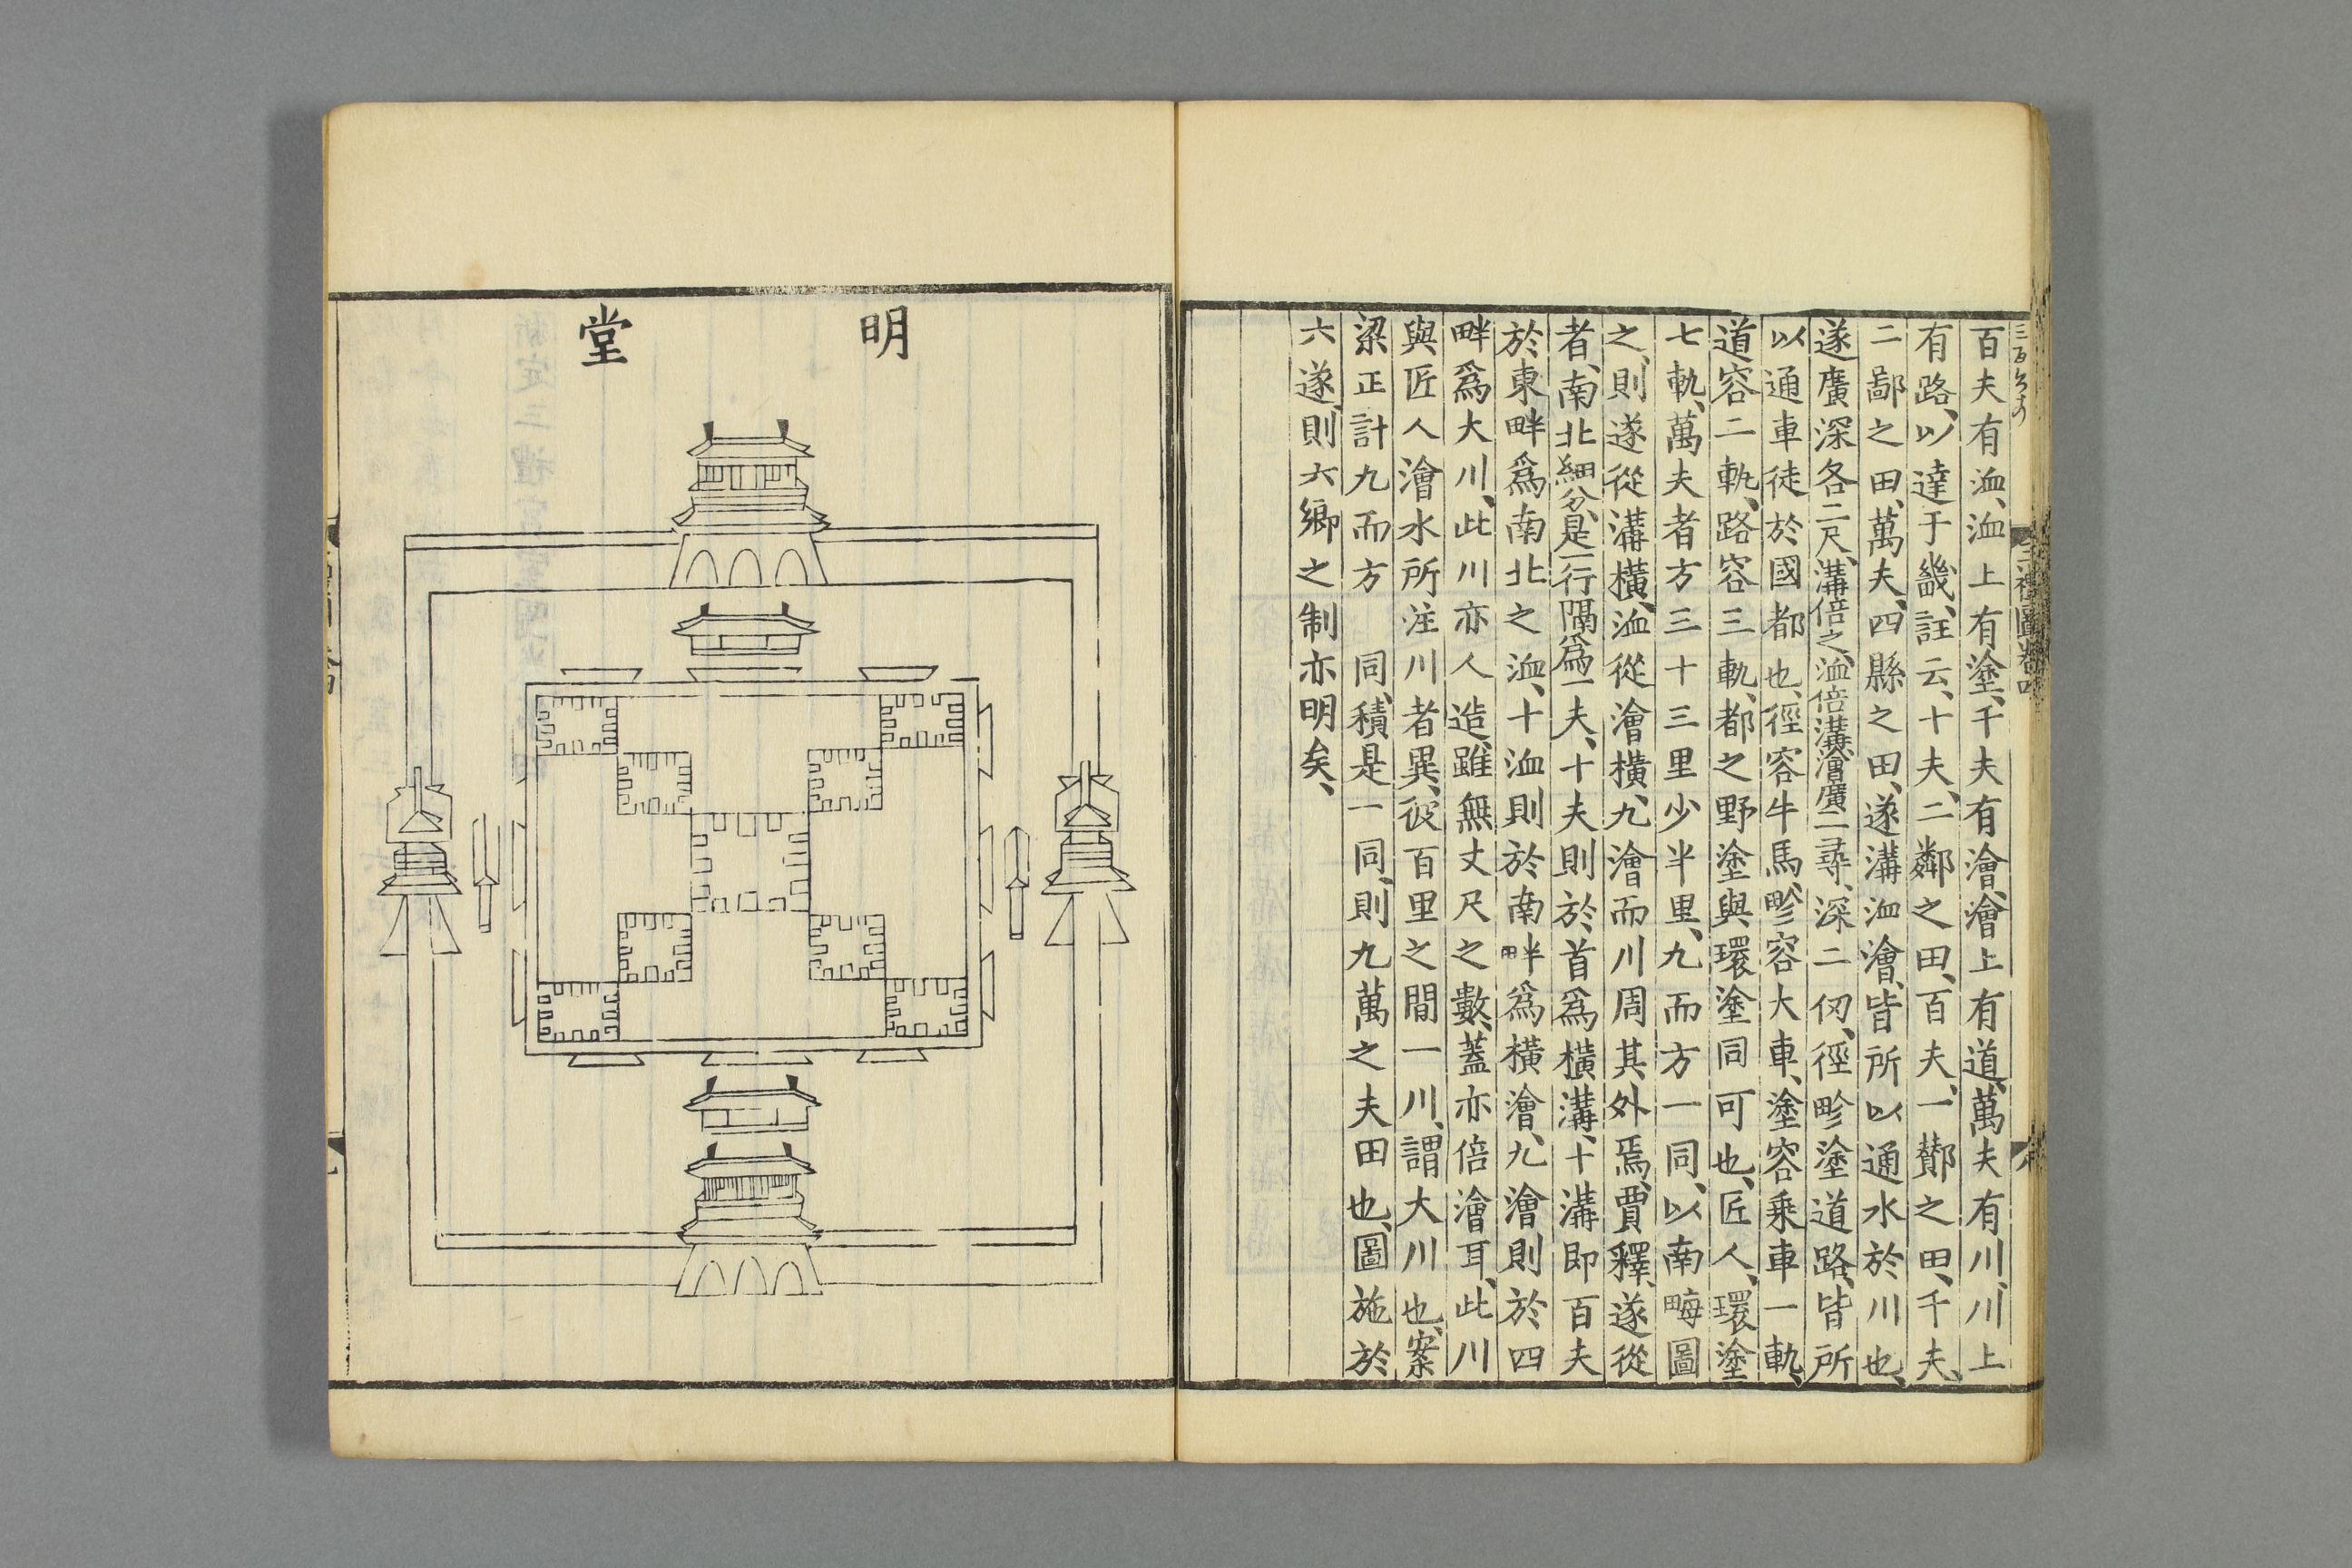 百夫有洫、洫上有塗、千夫有澮、澮上有道、萬夫有川、川上
有路、以達于畿、註云、十夫、二鄰之田、百夫、一酇之田、千夫、
二鄙之田、萬夫、四縣之田、遂溝洫澮、皆所以通水於川也、
遂廣深各二尺、溝倍之、洫倍溝、澮廣二尋、深二仞、徑畛塗道路、皆所
以通車徒於國都也、徑容牛馬、畛容大車、塗容乗車一軌、
道容二軌、路容三軌、都之野塗與環塗同可也、匠人、環塗
七軌、萬夫者方三十三里少半里、九而方一同、以南畮圖
之、則遂從溝橫、洫從澮橫、九澮而川周其外焉、賈釋、遂從
者、南北細分、是一行隔爲一夫、十夫則於首爲橫溝、十溝即百夫
於東畔爲南北之洫、十洫則於南畔爲橫澮、九澮則於四
畔爲大川、此川亦人造、雖無丈尺之數、蓋亦倍澮耳、此川
與匠人澮水所注川者異、彼百里之間一川、謂大川也、案
梁正計九而方 同、積是一同、則九萬之夫田也、圖施於
六遂、則六鄉之制亦明矣、
三禮圖卷四
明堂